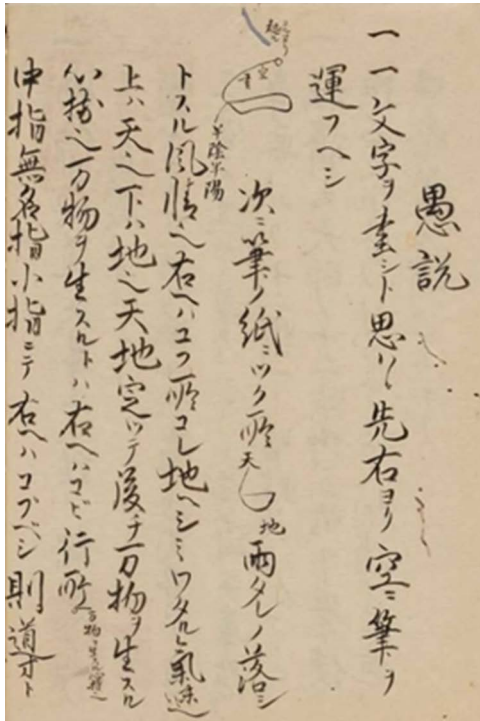 愚説
一一文字ヲ書ント思ハヽ先右ヨリ空ニ筆ヲ
運フヘシ
半陰半陽
次ニ筆ノ紙ニツク所天地雨タレノ落ン
トスル風情也右ヘハコフ所コレ地ヘシミワタル氣味也
上ハ天也下ハ地也天地定ツテ後チ万物ヲ生スル
心持也万物ヲ生スルトハ右ヘハコビ行所
中指無名指小指ニテ右ヘハコブベシ則導ト